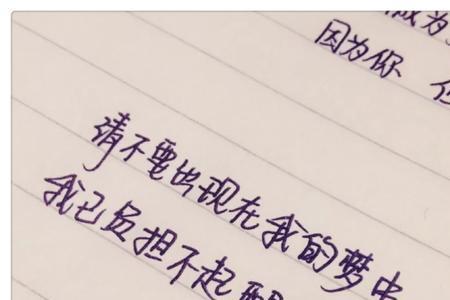 成为
因为你
请不要出现在我的梦中
我已负担不起